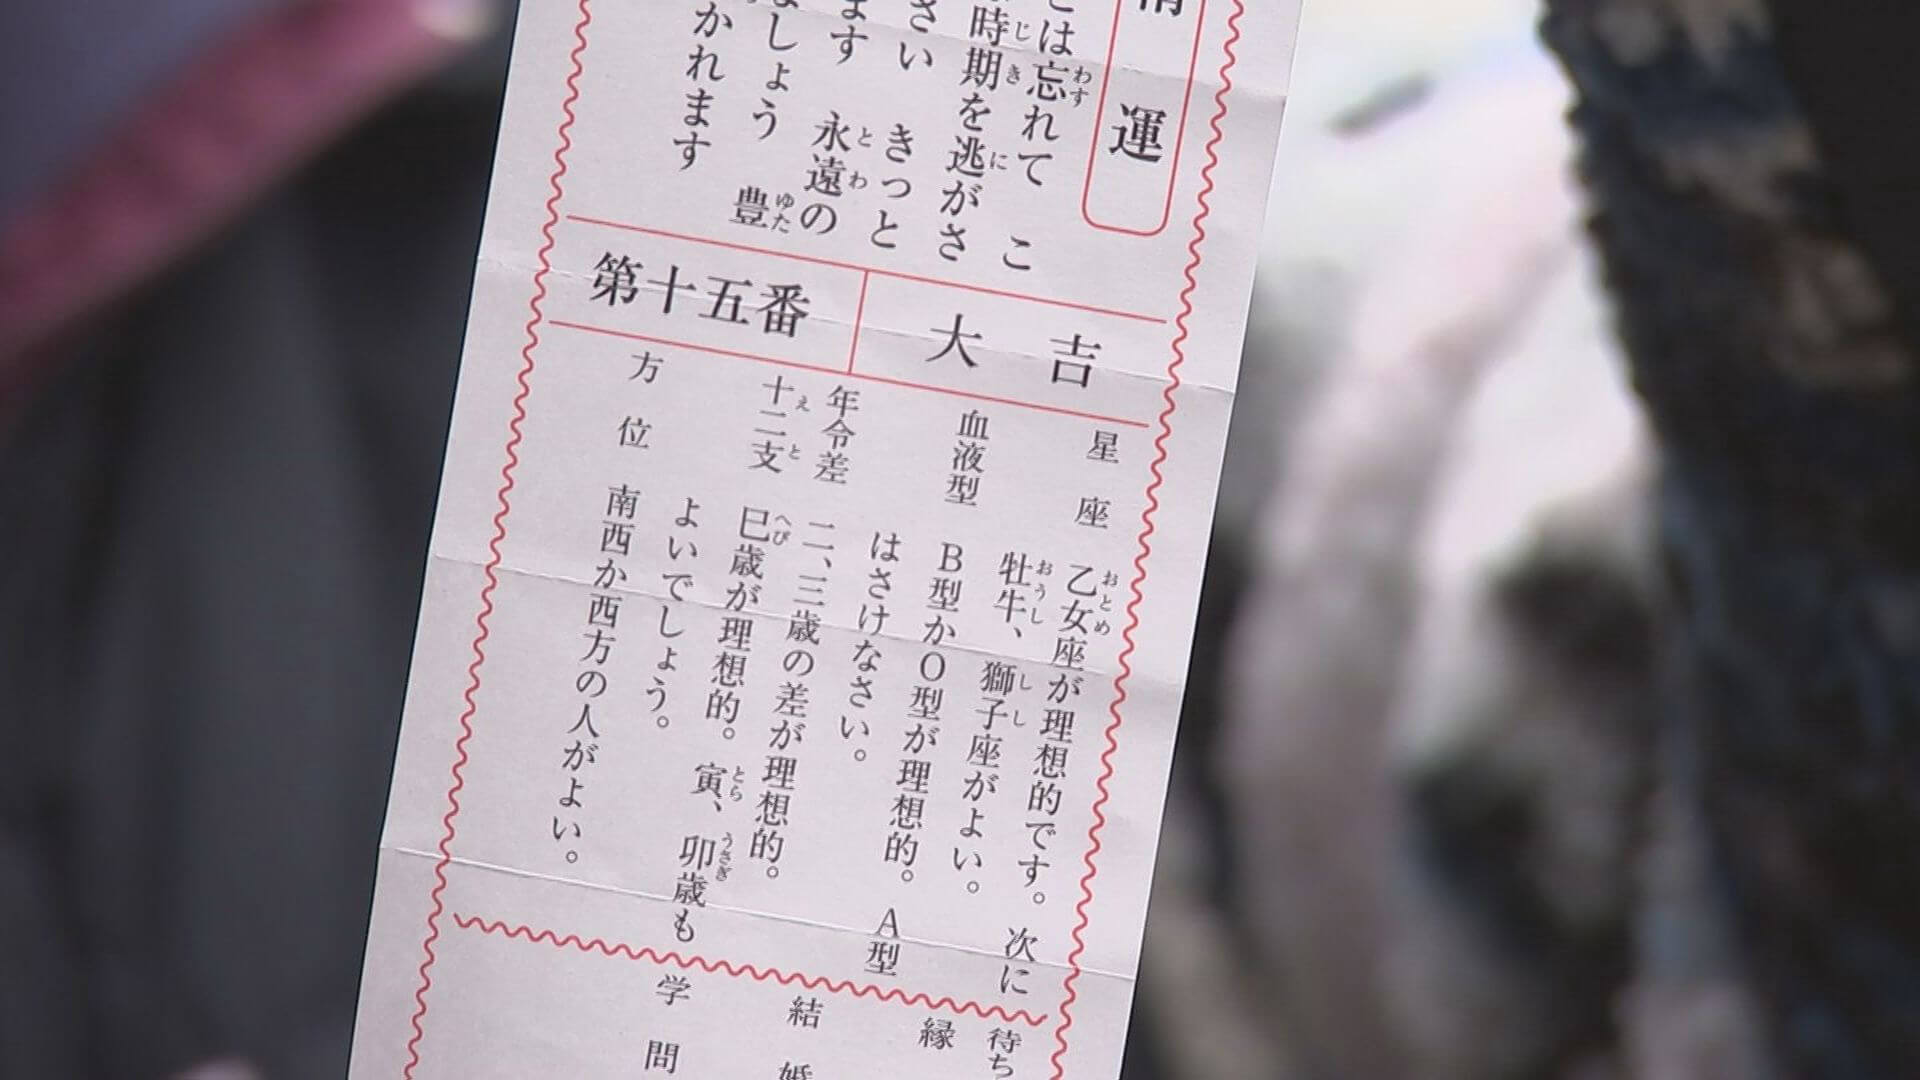 運
とは忘れて こ
時期を逃がさ
さい きっと
ます 永遠の
ましょう 豊
かれます
大吉
第十五番
星座 乙女座が理想的です。次に
牡牛、獅子座がよい。
血液型 B型かO型が理想的。A型
はさけなさい。
年令差 二、三歳の差が理想的。
十二支 巳歳が理想的。寅、卯歳も
よいでしょう。
方位 南西か西方の人がよい。
待ち
縁
結婚
学問